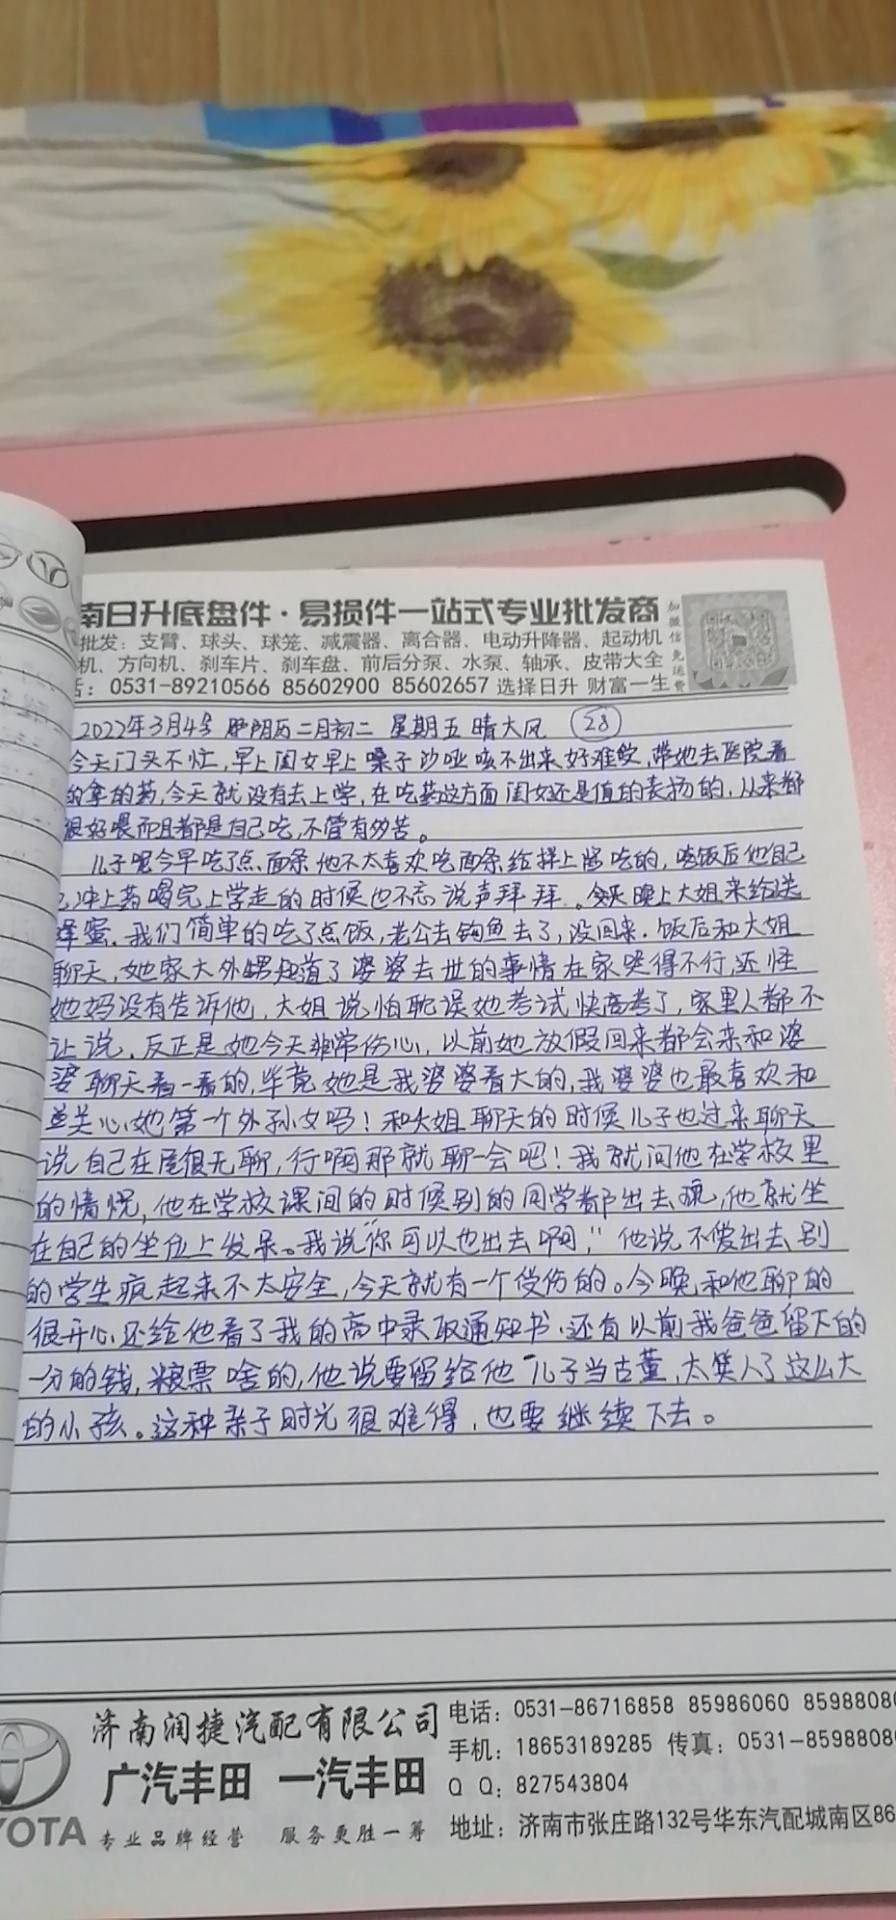 南日升底盘件·易损件一站式专业批发商
加微信免运费
批发：支臂、球头、球笼、减震器、离合器、电动升降器、起动机
机、方向机、刹车片、刹车盘、前后分泵、水泵、轴承、皮带大全
：0531-89210566 85602900 85602657 选择日升 财富一生
2022年3月4号 阴历二月初二 星期五 晴大风 28
今天门头不忙，早上闺女早上嗓子沙哑咳不出来好难受，带她去医院看
的拿的药，今天就没有去上学，在吃药这方面闺女还是值的表扬的，从来都
很好喂而且都是自己吃，不管有多苦。
儿子呢今早吃了点面条他不太喜欢吃面条给拌上酱吃的，吃饭后他自己
冲上药喝完上学走的时候也不忘说声拜拜。今天晚上大姐来给送
蜂蜜．我们简单的吃了点饭，老公去钩鱼去了，没回来．饭后和大姐
聊天，她家大外甥知道了婆婆去世的事情在家哭得不行，还怪
她妈没有告诉他，大姐说怕耽误她考试快高考了，家里人都不
让说．反正是她今天非常伤心，以前她放假回来都会来和婆
婆聊天看一看的，毕竟她是我婆婆看大的，我婆婆也最喜欢和
关心她第一个外孙女吗！和大姐聊天的时候儿子也过来聊天
说自己在屋很无聊，行啊那就聊一会吧！我就问他在学校里
的情况，他在学校课间的时候别的同学都出去玩，他就坐
在自己的坐位上发呆。我说“你可以也出去啊”，他说不爱出去别
的学生疯起来不太安全，今天就有一个受伤的。今晚和他聊的
很开心还给他看了我的高中录取通知书．还有以前我爸爸留下的
一分的钱，粮票啥的，他说要留给他儿子当古董，太笑人了这么大
的小孩。这种亲子时光很难得，也要继续下去。
济南润捷汽配有限公司
广汽丰田 一汽丰田
YOTA 专业品牌经营 服务更胜一筹
电话：0531-86716858 85986060 8598808
手机：18653189285 传真：0531-8598808
Q Q：827543804
地址：济南市张庄路132号华东汽配城南区86